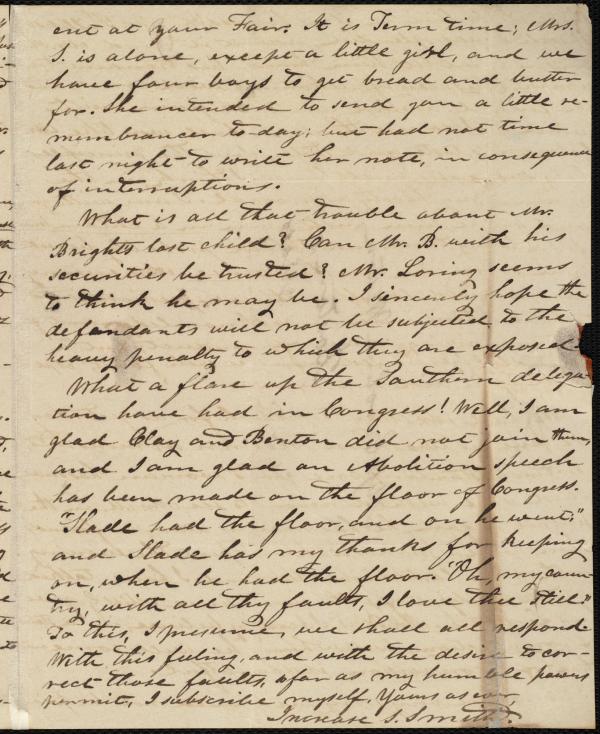 ent at your Fair. It is Term time; Mrs.
S. is alone, except a little girl, and we
have four boys to get bread and butter
for. She intended to send you a little re-
membrancer to-day; but had not time
last night to write her note, in consequence
of interruptions.
What is all that trouble about Mr.
Brights last child? Can Mr. B. with his
securities be trusted? Mr. Loring seems
to think he may be. I sincerely hope the
defandants will not be subjected to the
heavy penalty to which they are exposed.
What a flare up the Southern delega-
tion have had in Congress! Well, I am
glad Clay and Benton did not join them,
and I am glad an Abolition speech
has been made on the floor of Congress.
"Slade had the floor, and on he went;"
and Slade has my thanks for keeping
on, when he had the floor. "Oh, my coun-
try, with all thy faults, I love thee still."
To this, I presume, we shall all respond.
With this feeling, and with the desire to cor-
rect those faults, as far as my humble powers
permit, I subscribe myself, Yours as ever,
Increase S. Smith.